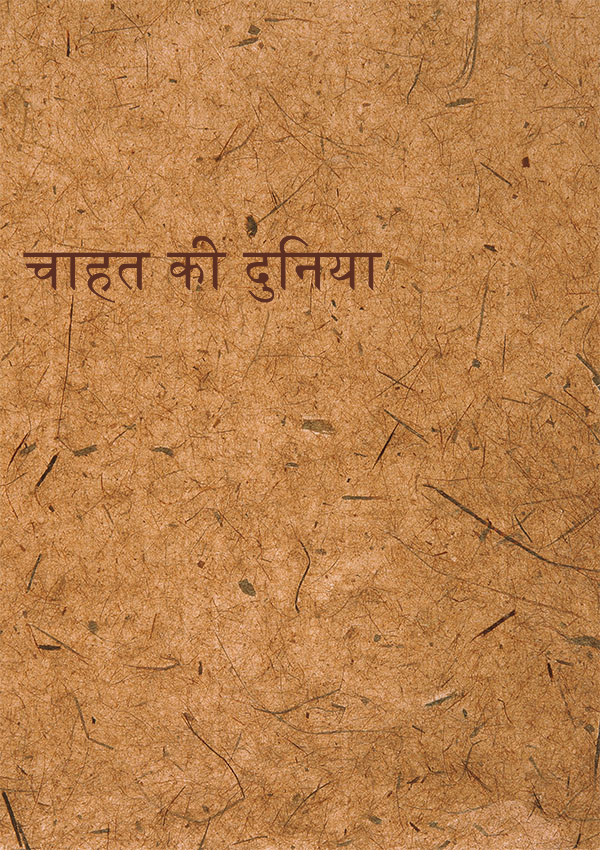 चाहत की दुनिया